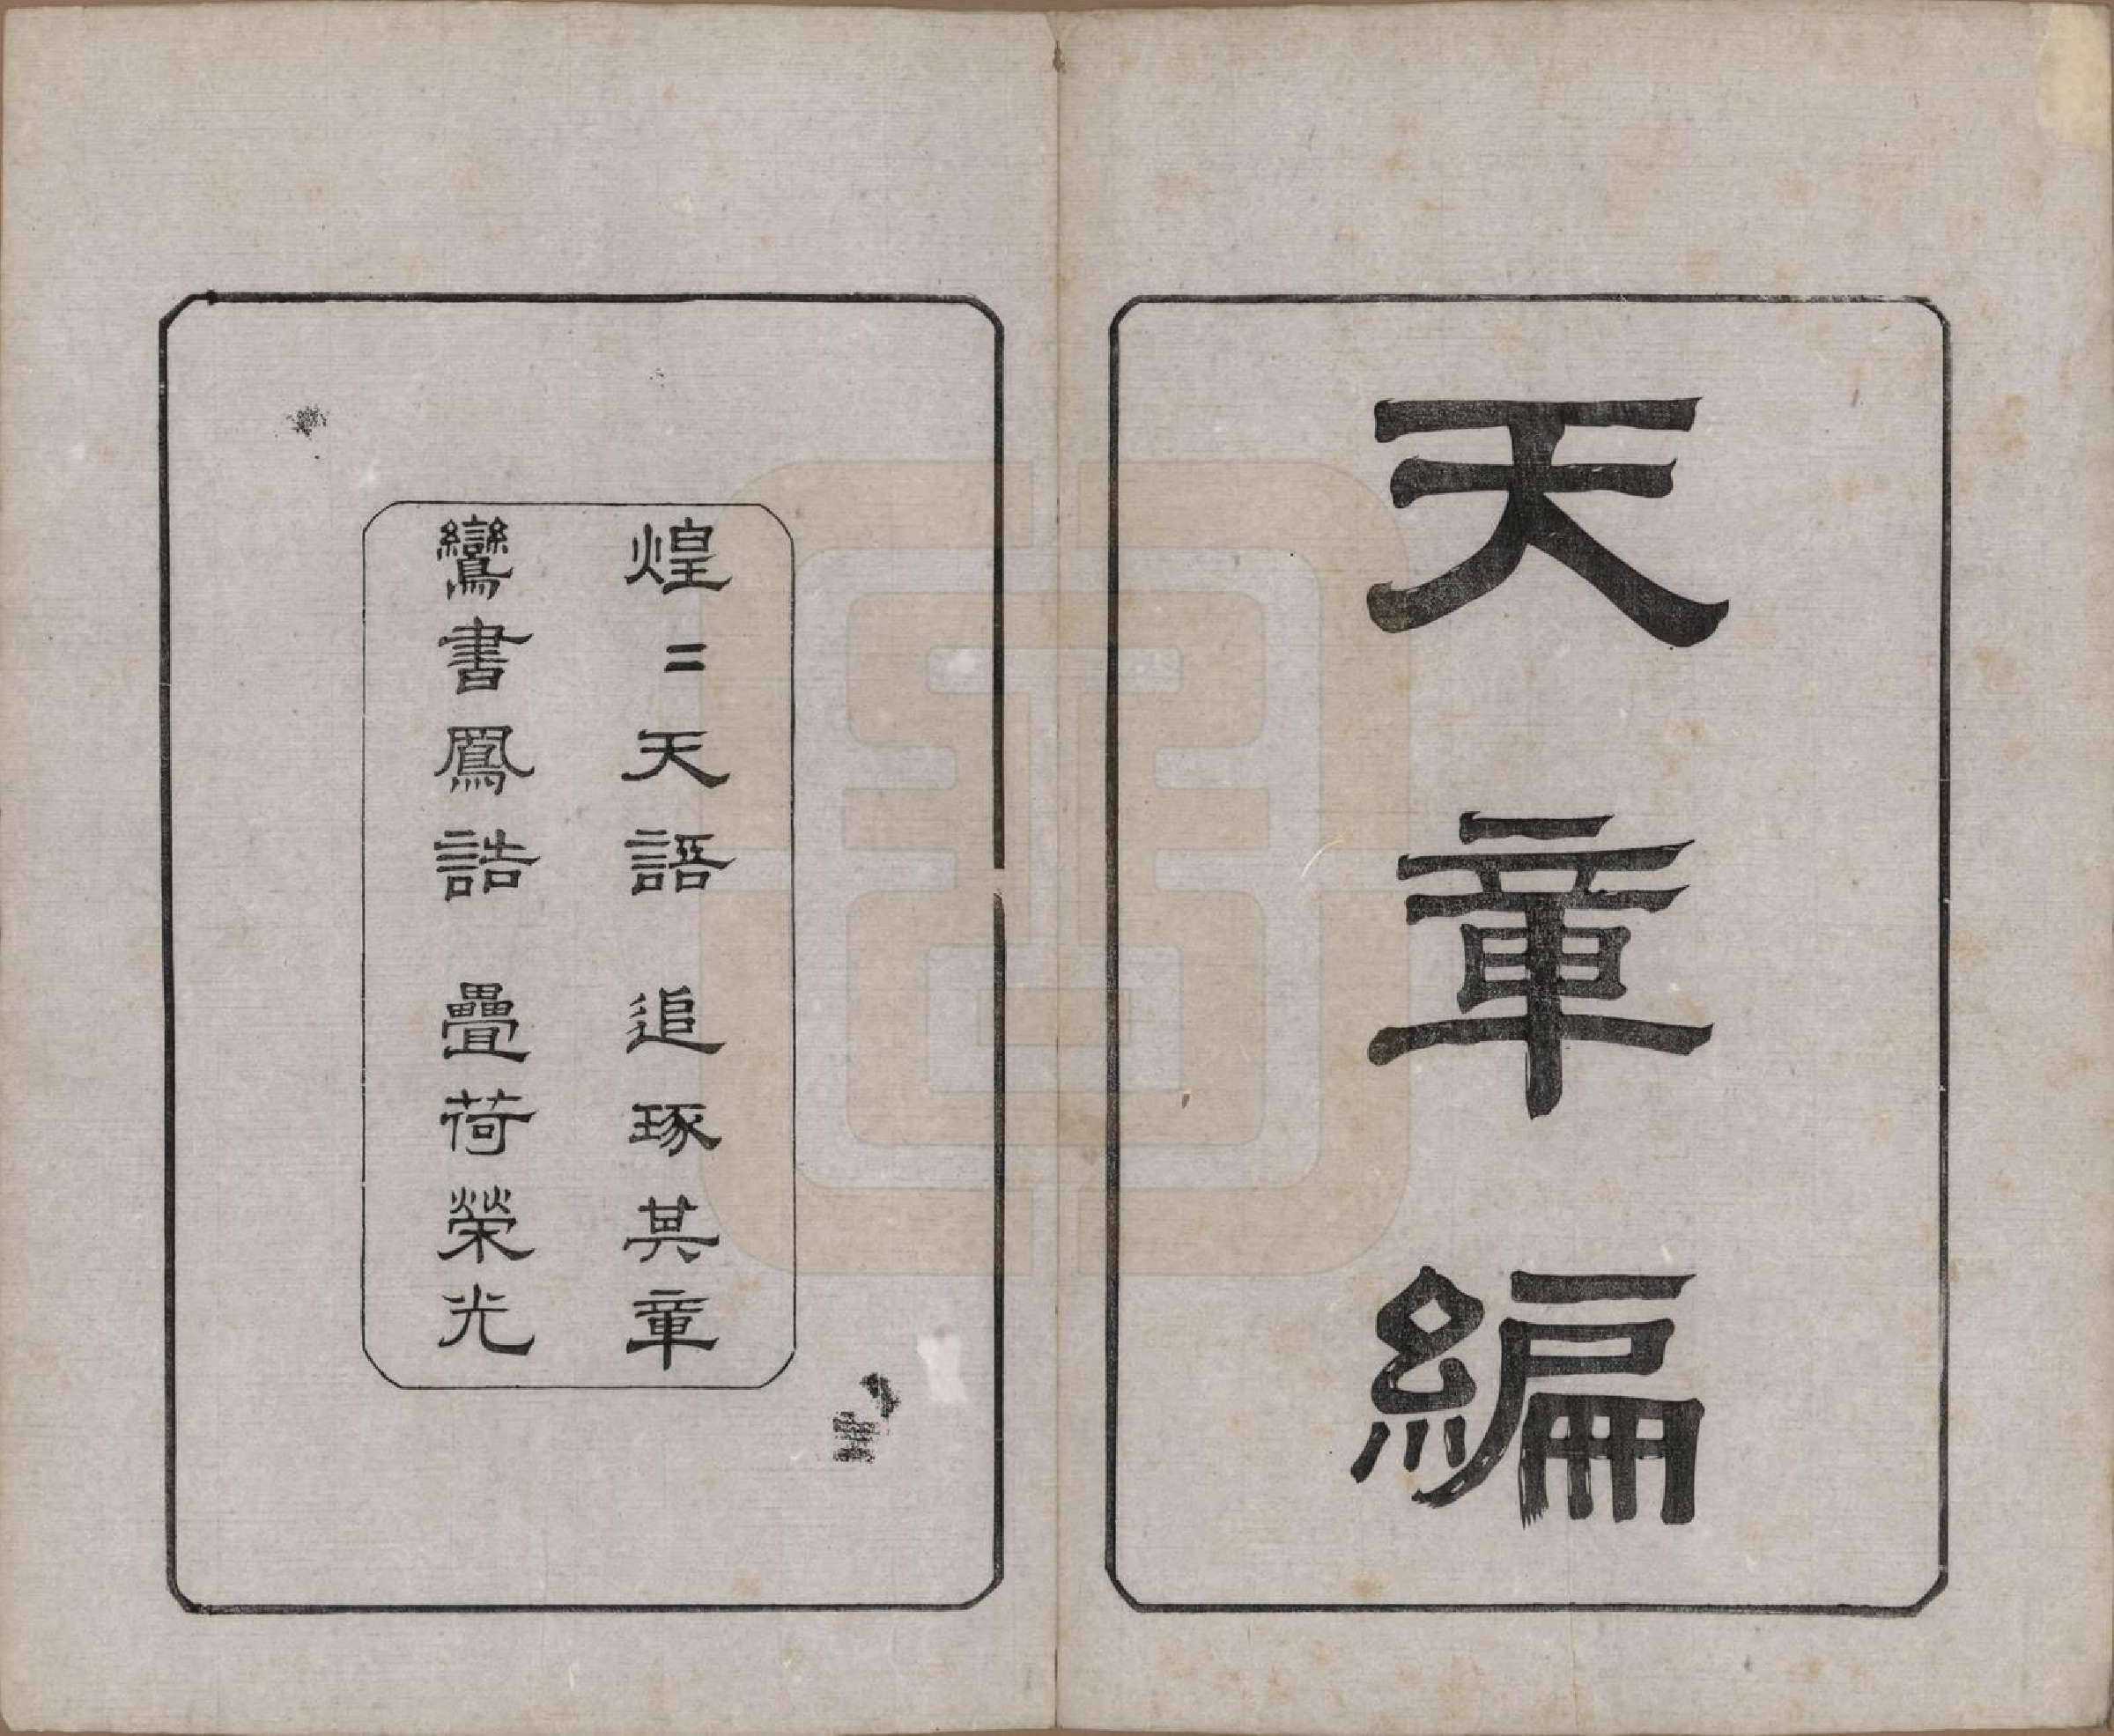 天章編
煌〻天語 追琢其章
鸞書鳳誥 疊荷榮光